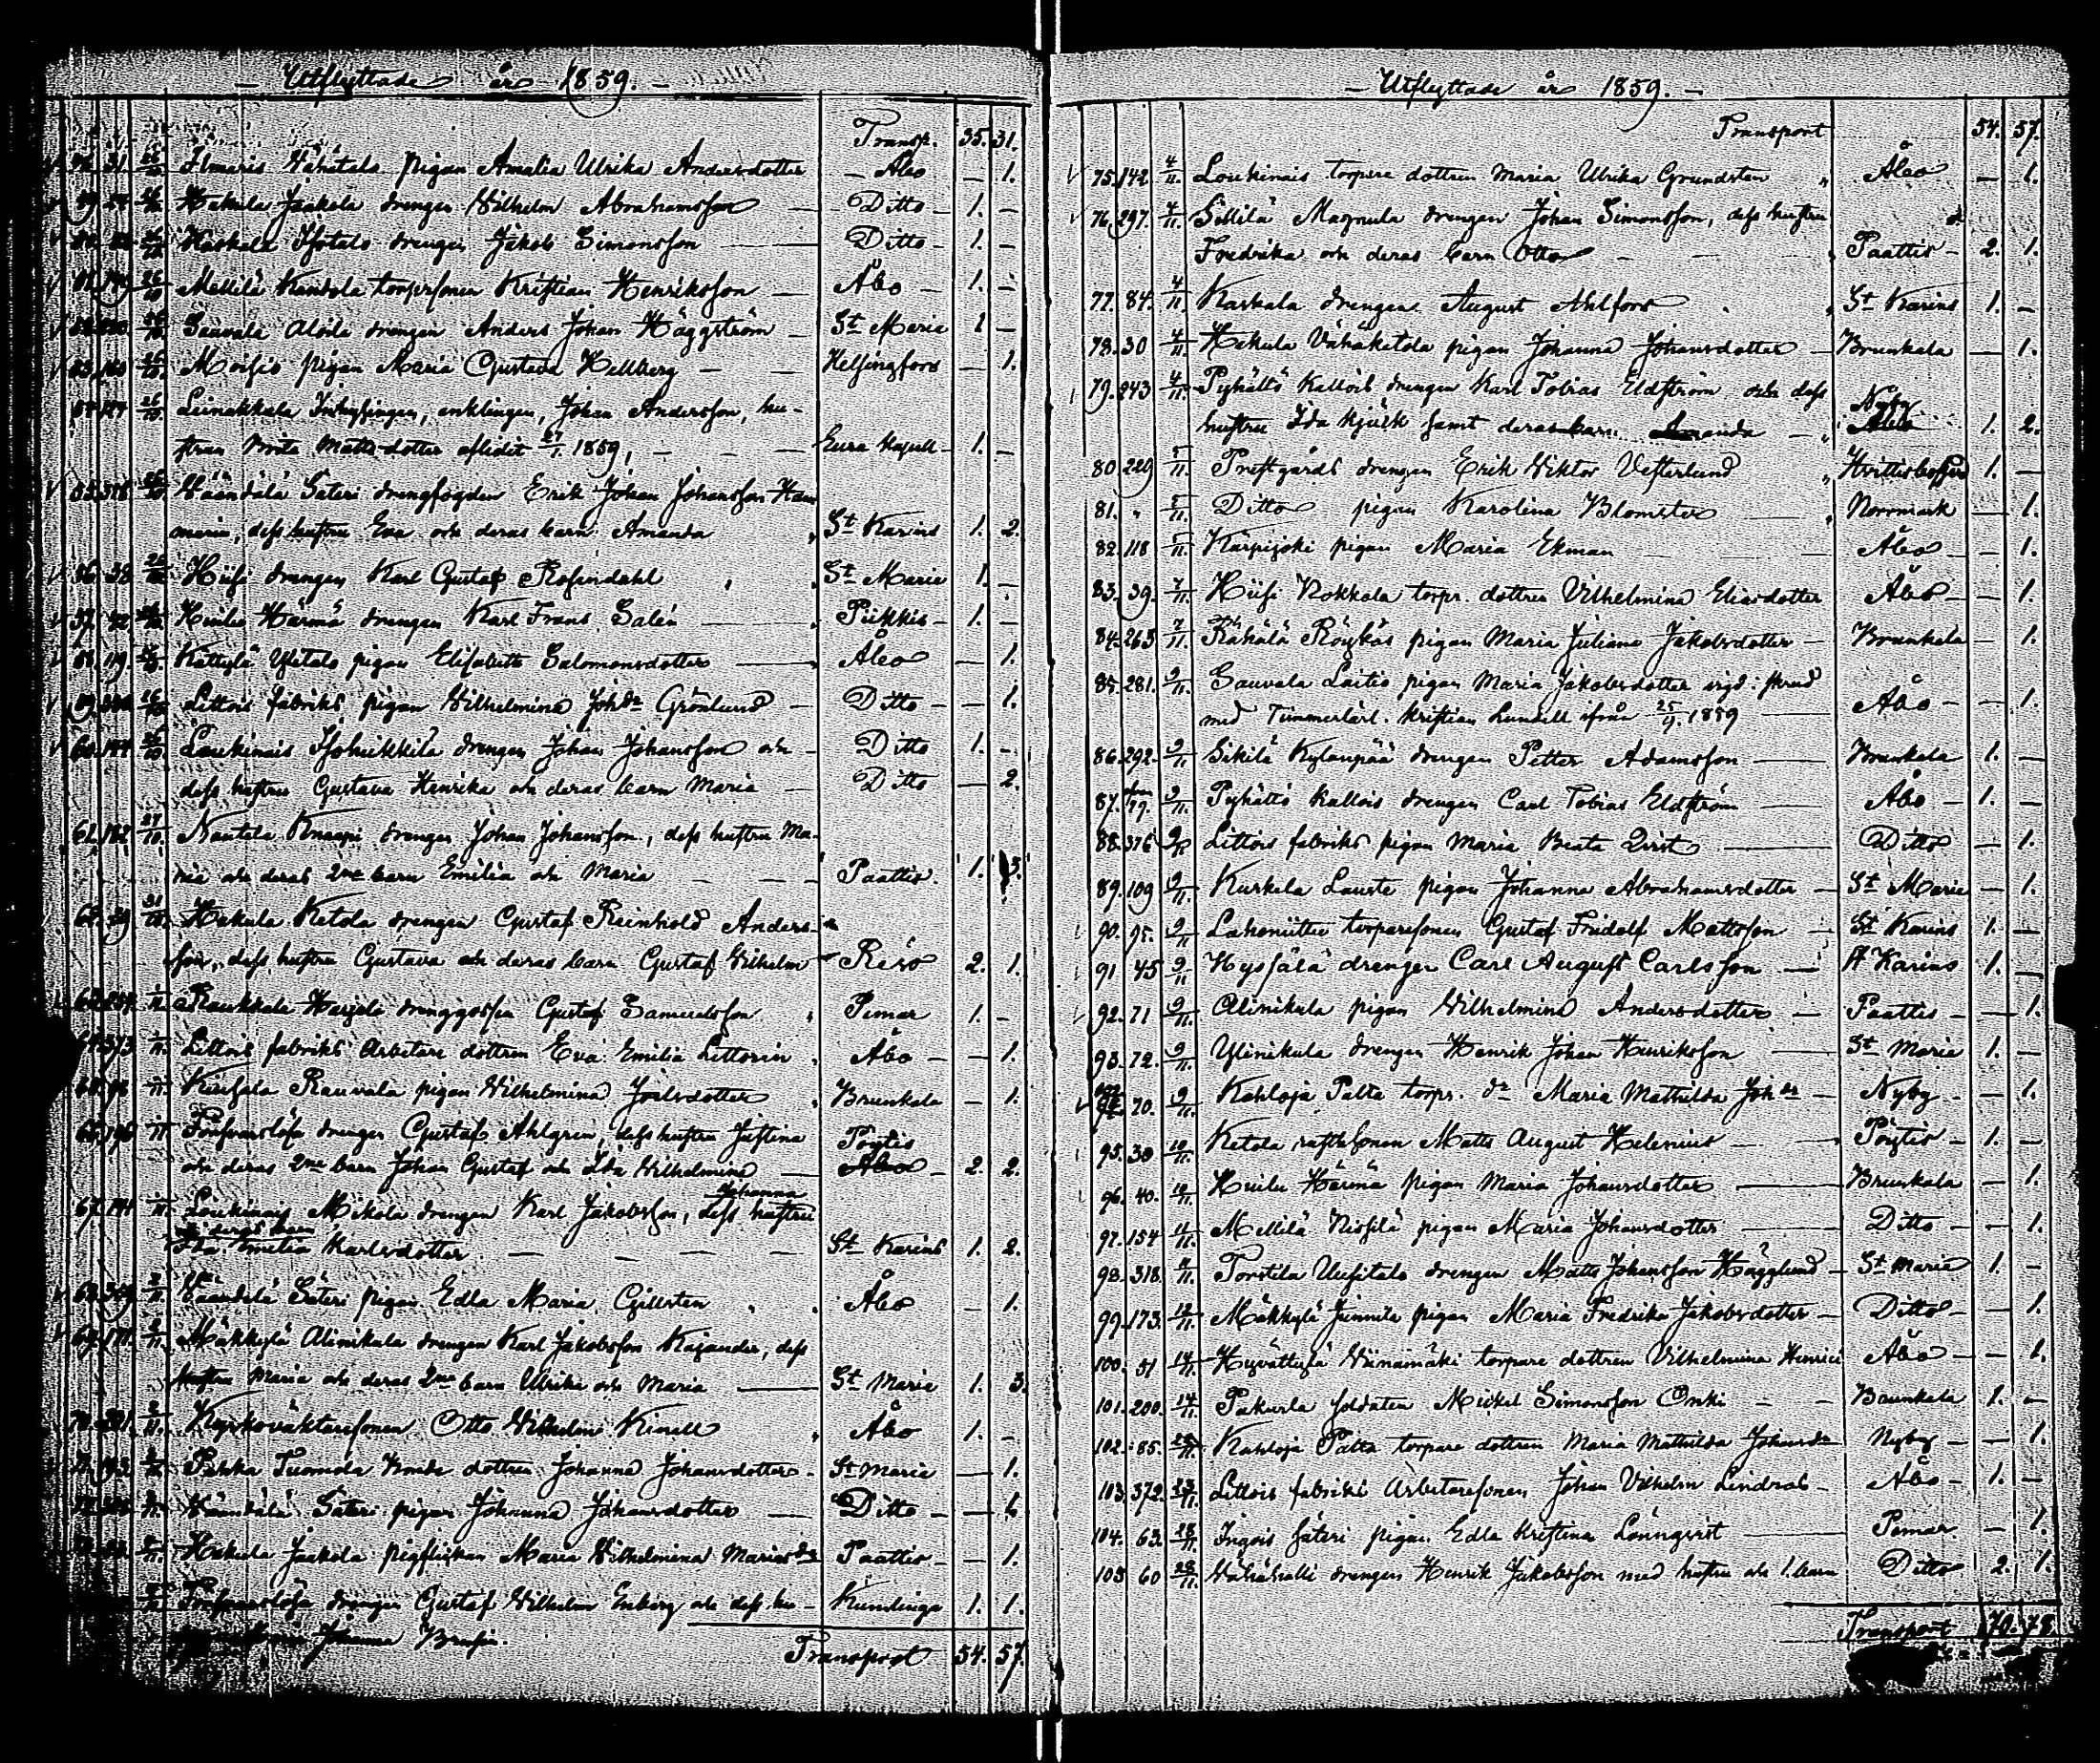 Utflyttade år 1859.
Transp. 35. 31.
31. 26/10 Ilmaris Vähätalo pigan Amalia Ulrika Andersdotter Åbo — 1.
26/10 Hakula Jaakola drengen Wilhelm Abrahamsson Ditto 1. —
26/10 Kaskala Isotalo drengen Jakob Simonsson Ditto 1. —
26/10 Mellilä torparesonen Kristian Henriksson Åbo 1. —
26/10 Sauvala Aloila drengen Anders Johan Häggström St Marie 1 —
26/10 Moisio pigan Maria Gustava Hellberg Helsingfors — 1.
26/10 Leinakkala Inhysingen, enklingen, Johan Andersson, hu-
strun Brita Mattsdotter aflidit 27/1 1859, Eura Kapell 1. —
26/10 Väändälä Säteri drengfogden Erik Johan Johansson
dess hustru Eva och deras barn Amanda St Karins 1. 2.
56. 38. 26/10 Hiisi drengen Karl Gustaf Rosendahl St Marie 1. —
57. 42. 26/10 Huilu Härmä drengen Karl Frans Salén Piikkis 1. —
58. 119. 26/10 Kättylä Ylitalo pigan Elisabeth Salomonsdotter Åbo — 1.
26/10 Littois fabriks pigan Wilhelmina Johdr Grönlund Ditto — 1.
60. 144. 26/10 Loukinais Isoheikkilä drengen Johan Johansson och Ditto 1. —
dess hustru Gustava Henrika och deras barn Maria Ditto — 2.
61. 182. 27/10 Nautela Knaapi drengen Johan Johansson, dess hustru Ma-
ria och deras 2ne barn Emilia och Maria Paattis. 1. 3.
62. 29. 31/10 Hakula Ketola drengen Gustaf Reinhold Anders-
son, dess hustru Gustava och deras barn Gustaf Wilhelm Reso 2. 1.
Raukkala Harjula drenggossen Gustaf Samuelsson Pemar 1. —
373 Littois fabriks Arbetare dottren Eva Emilia Littorin Åbo — 1.
Rauvala pigan Wilhelmina Joelsdotter Brunkala — 1.
66. 196 Försvarslösa drengen Gustaf Ahlgren, dess hustru Justina Pöytis
och deras 2ne barn Johan Gustaf och Ida Wilhelmina Åbo 2. 2.
Johanna
67. 141 Loukinais Mikola drengen Karl Jakobsson, dess hustru
o. deras barn
Ida Emilia Karlsdotter St Karins 1. 2.
2/11 Väändälä Säteri pigan Edla Maria Gillsten Åbo — 1.
69. 171. 2/11 Mäkkylä Alinikula drengen Karl Jakobsson Kajander, dess
hustru Maria och deras 2ne barn Ulrika och Maria St Marie 1. 3.
2/11 Kyrkoväktaresonen Otto Wilhelm Kinell Åbo 1. —
Pahka Tuomola bonde dottren Johanna Johansdotter St Marie — 1.
Väändälä Säteri pigan Johanna Johansdotter Ditto — 1.
Hakula Jaakola pigflickan Maria Wilhelmina Mariasdr Paattis — 1.
Försvarslösa drengen Gustaf Wilhelm Enberg och dess hu- Kumlinge 1. 1.
Johanna
Transport 54. 57.
Utflyttade år 1859.
Transport 54. 57.
75. 142. 4/11. Loukinais torpare dottren Maria Ulrika Grundsten Åbo — 1.
76. 297. 4/11. Sillilä Magnula drengen Johan Simonsson, dess hustru
Fredrika och deras barn Otto Paattis 2. 1.
77. 84. 4/11 Karkala drengen August Ahlfors St Karins 1. —
78. 30 4/11. Hakula Vähäketola pigan Johanna Johansdotter Brunkala — 1.
79. 243 4/11. Pyhältö Kallois drengen Karl Tobias Eldström och dess
hustru Ida Kjück samt deras barn Amanda Nyby 1. 2.
80. 229 5/11. Prestgårds drengen Erik Viktor Vesterlund Hvittisbofjerd 1. —
81. " 5/11. Ditto pigan Karolina Blomster Norrmark — 1.
82. 118 5/11. Karpijoki pigan Maria Ekman Åbo — 1.
83. 39. 7/11. Hiisi Nokkala torpr. dottren Vilhelmina Eliasdotter Åbo — 1.
84. 263 7/11. Rähälä Röykäs pigan Maria Juliana Jakobsdotter Brunkala — 1.
85. 281. 9/11. Sauvala Laitio pigan Maria Jakobsdotter vigd: skrud
med Timmerlärl. Kristian Lundell ifrån 25/9 1859 Åbo — 1.
86. 292. 9/11 Sikilä Kylänpää drengen Petter Adamsson Brunkala 1. —
87. 9/11. Pyhältö Kallois drengen Carl Tobias Eldström Åbo 1. —
88. 376 9/11 Littois fabriks pigan Maria Beata Qvist Ditto — 1.
89. 109 9/11 Kurkela Laurte pigan Johanna Abrahamsdotter St Marie — 1.
90. 95. 9/11 Lahoniittu torparesonen Gustaf Fridolf Mattsson St Karins 1. —
91 45 9/11 Hyssälä drengen Carl August Carlsson St Karins 1. —
92. 71 9/11. Alinikula pigan Wilhelmina Andersdotter Paattis — 1.
93. 72. 9/11. Ylinikula drengen Henrik Johan Henriksson St Marie 1. —
70. 9/11. Kahloja Palta torpr. dr Maria Mathilda Johdr Nyby — 1.
95. 30 10/11. Ketola rusthsonen Matts August Helenius Pöytis 1. —
96. 40. 10/11 Huilu Härmä pigan Maria Johansdotter Brunkala — 1.
97. 154 11/11. Mellilä Nissilä pigan Maria Johansdotter Ditto — 1.
98. 318. 11/11. Torstila Uusitalo drengen Matts Johansson Hägglund St Maria 1. —
99. 173. 12/11. Mäkkylä Junnila pigan Maria Fredrika Jakobsdotter Ditto — 1.
100. 51 14/11 Hyvättylä Niinämäki torpare dottren Vilhelmina Henrici Åbo — 1.
101. 200. 14/11. Pakurla soldaten Mickel Simonsson Onki Brunkala 1. —
102. 85. Kahloja Palta torpare dottren Maria Mathilda Johansdr Nyby — 1.
103. 372. Littois fabriks Arbetaresonen Johan Vilhelm Lindroos Åbo 1. —
104. 63. 28/11. Ingois säteri pigan Edla Kristina Lönnqvist Pemar — 1.
105 60 28/11. Vähähalli drengen Henrik Jakobsson med hustru och 1. barn Ditto 2. 1.
Transport 70. 78.